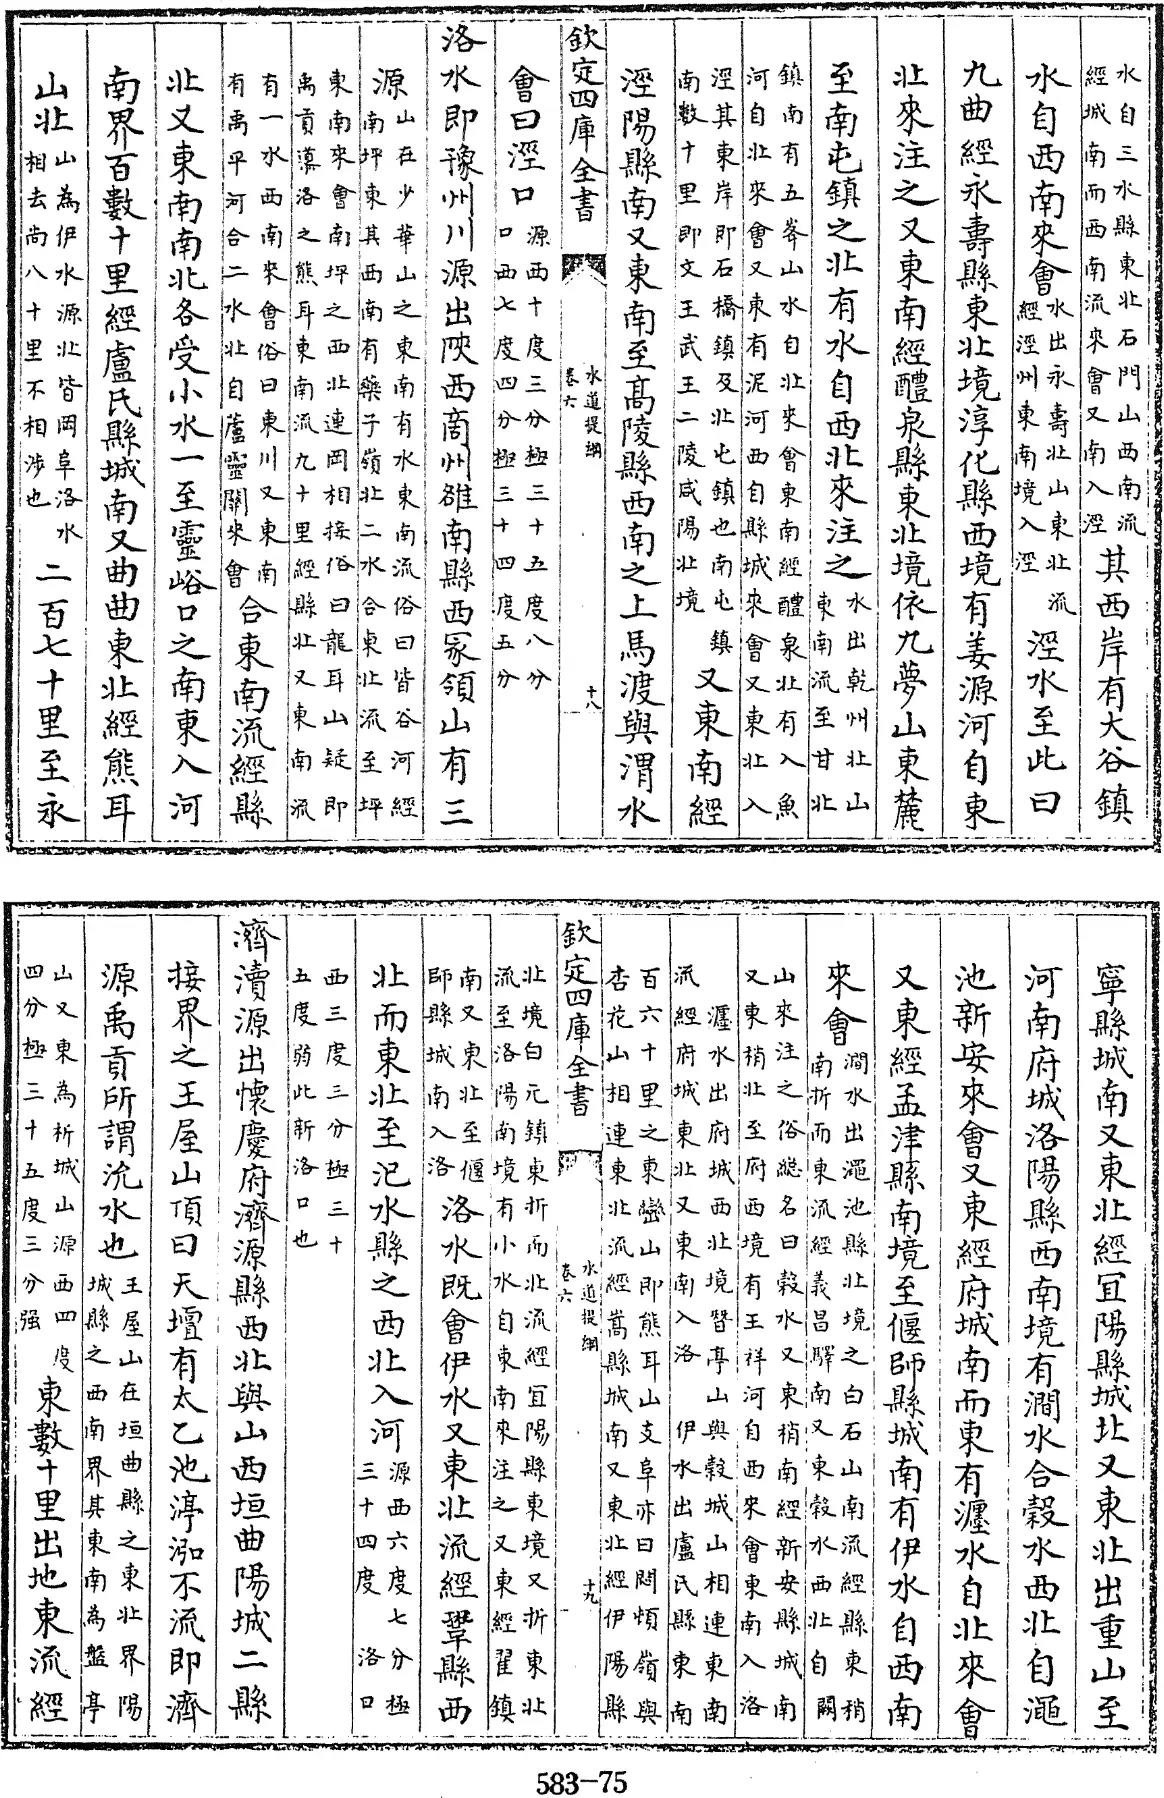 水自三水縣東北石門山西南流
經城南而西南流來會又南入涇
其西岸有大谷鎮
水自西南來會
水出永壽北山東北流
經涇州東南境入涇
涇水至此曰
九曲經永壽縣東北境淳化縣西境有姜源河自東
北來注之又東南經醴泉縣東北境依九夢山東麓
至南屯鎮之北有水自西北來注之
水出乾州北山
東南流至甘北
鎮南有五峯山水自北來會東南經醴泉北有入魚
河自北來會又東有泥河西自縣城來會又東北入
涇其東岸即石橋鎮及北屯鎮也南屯鎮
南數十里即文王武王二陵咸陽北境
又東南經
涇陽縣南又東南至高陵縣西南之上馬渡與渭水
欽定四庫全書
水道提綱
卷六
十八
會曰涇口
源西十度三分極三十五度八分
口西七度四分極三十四度五分
洛水即豫州川源出陝西商州雒南縣西冢領山有三
源
山在少華山之東南有水東南流俗曰皆谷河經
南坪東其西南有藥子嶺北二水合東北流至坪
東南來會南坪之西北連岡相接俗曰龍耳山疑即
禹貢導洛之熊耳東南流九十里經縣北又東南流
有一水西南來會俗曰東川又東南
有禹平河合二水北自蘆靈關來會
合東南流經縣
北又東南南北各受小水一至靈峪口之南東入河
南界百數十里經盧氏縣城南又曲曲東北經熊耳
山北
山為伊水源北皆岡阜洛水
相去尚八十里不相涉也
二百七十里至永
寧縣城南又東北經宜陽縣城北又東北出重山至
河南府城洛陽縣西南境有澗水合穀水西北自澠
池新安來會又東經府城南而東有瀍水自北來會
又東經孟津縣南境至偃師縣城南有伊水自西南
來會
澗水出澠池縣北境之白石山南流經縣東稍
南折而東流經義昌驛南又東穀水西北自闕
山來注之俗總名曰穀水又東稍南經新安縣城南
又東稍北至府西境有王祥河自西來會東南入洛
瀍水出府城西北境朁亭山與穀城山相連東南
流經府城東北又東南入洛
伊水出盧氏縣東南
百六十里之東巒山即熊耳山支阜亦曰悶頓嶺與
杏花山相連東北流經嵩縣城南又東北經伊陽縣
欽定四庫全書
水道提綱
卷六
十九
北境白元鎮東折而北流經宜陽縣東境又折東北
流至洛陽南境有小水自東南來注之又東經翟鎮
南又東北至偃
師縣城南入洛
洛水既會伊水又東北流經鞏縣西
北而東北至汜水縣之西北入河
源西六度七分極
三十四度 洛口
西三度三分極三十
五度弱此新洛口也
濟瀆源出懷慶府濟源縣西北與山西垣曲陽城二縣
接界之王屋山頂曰天壇有太乙池渟泓不流即濟
源禹貢所謂沇水也
王屋山在垣曲縣之東北界陽
城縣之西南界其東南為盤亭
山又東為析城山源西四度
四分極三十五度三分强
東數十里出地東流經
583-75